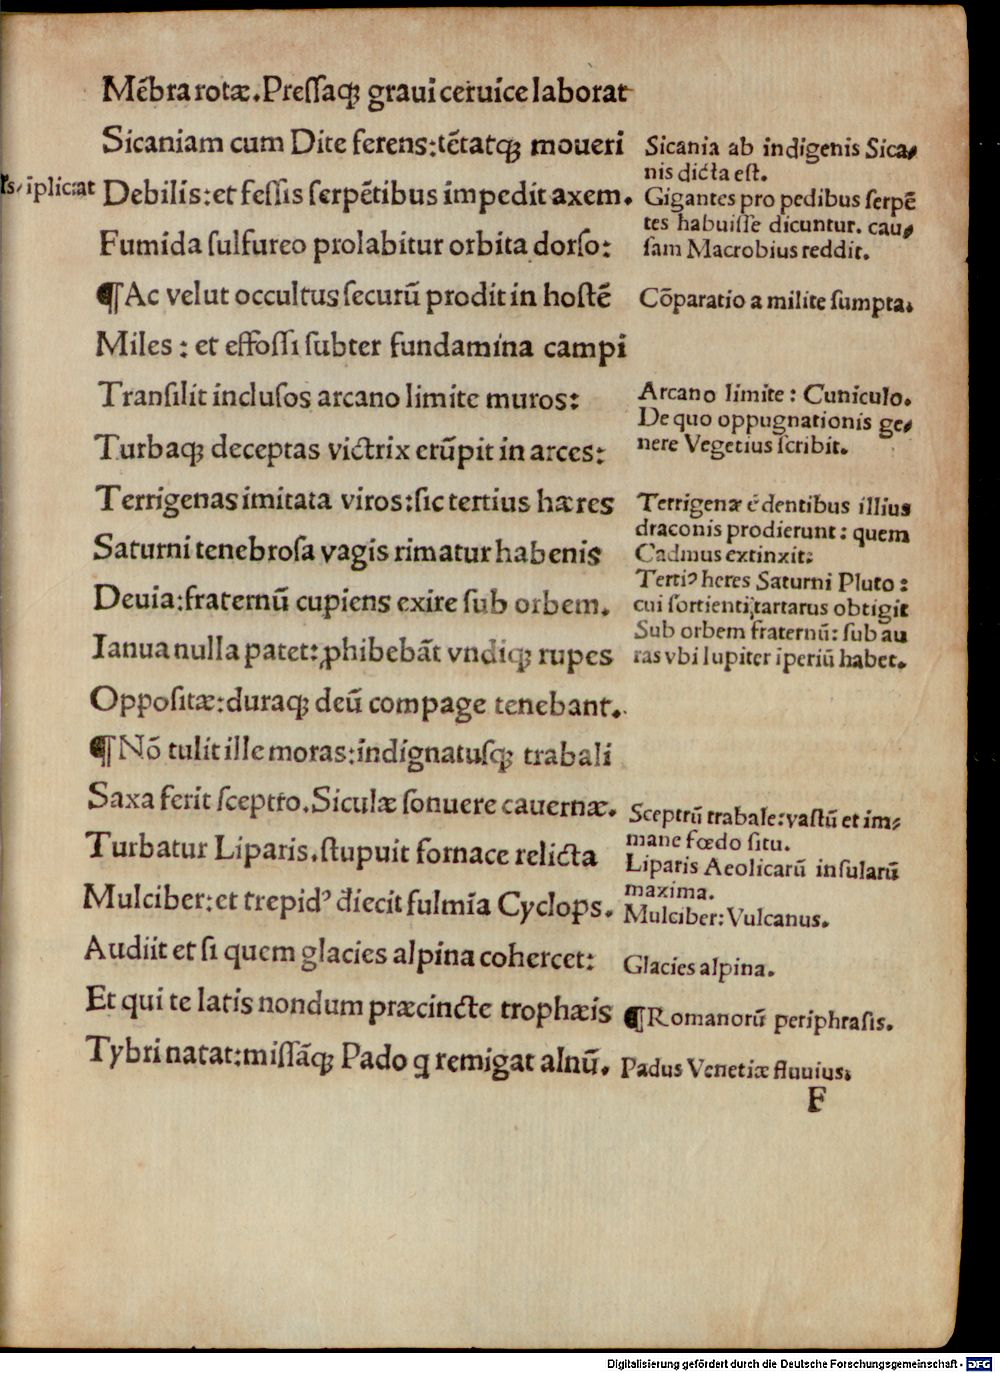 Mẽbra rotæ. Preſſaqꝫ graui ceruice laborat
Sicaniam cum Dite ferens: tẽtatqꝫ moueri
Debilis: et feſſis ſerpẽtibus impedit axem.
Fumida ſulfureo prolabitur orbita dorſo:
¶ Ac velut occultus ſecurũ prodit in hoſtẽ
Miles: et effoſſi ſubter fundamina campi
Tranſilit incluſos arcano limite muros:
Turbaqꝫ deceptas victrix erũpit in arces:
Terrigenas imitata viros: ſic tertius hæres
Saturni tenebroſa vagis rimatur habenis
Deuia: fraternũ cupiens exire ſub orbem.
Ianua nulla patet: ꝓhibebãt vndiqꝫ rupes
Oppoſitæ: duraqꝫ deũ compage tenebant.
¶ Nõ tulit ille moras: indignatuſqꝫ trabali
Saxa ferit ſceptro. Siculæ ſonuere cauernæ.
Turbatur Liparis. ſtupuit fornace relicta
Mulciber: et trepidꝰ diecit fulmĩa Cyclops.
Audiit et ſi quem glacies alpina cohercet:
Et qui te latis nondum præcincte trophæis
Tybri natat: miſſãqꝫ Pado q remigat alnũ.
ſ, iplicat
Sicania ab indigenis Sica⸗
nis dicta eſt.
Gigantes pro pedibus ſerpẽ
tes habuiſſe dicuntur. cau⸗
ſam Macrobius reddit.
Cõparatio a milite ſumpta.
Arcano limite: Cuniculo.
De quo oppugnationis ge⸗
nere Vegetius ſcribit.
Terrigenæ e dentibus illius
draconis prodierunt: quem
Cadmus extinxit:
Tertiꝰ heres Saturni Pluto:
cui ſortienti tartarus obtigit
Sub orbem fraternũ: ſub au
ras vbi Iupiter iperiũ habet.
Sceptrũ trabale: vaſtũ et im⸗
mane fœdo ſitu.
Liparis Aeolicarũ inſularũ
maxima.
Mulciber: Vulcanus.
Glacies alpina.
¶ Romanorũ periphraſis.
Padus Venetiæ fluuius.
F
Digitalisierung gefördert durch die Deutsche Forschungsgemeinschaft - DFG